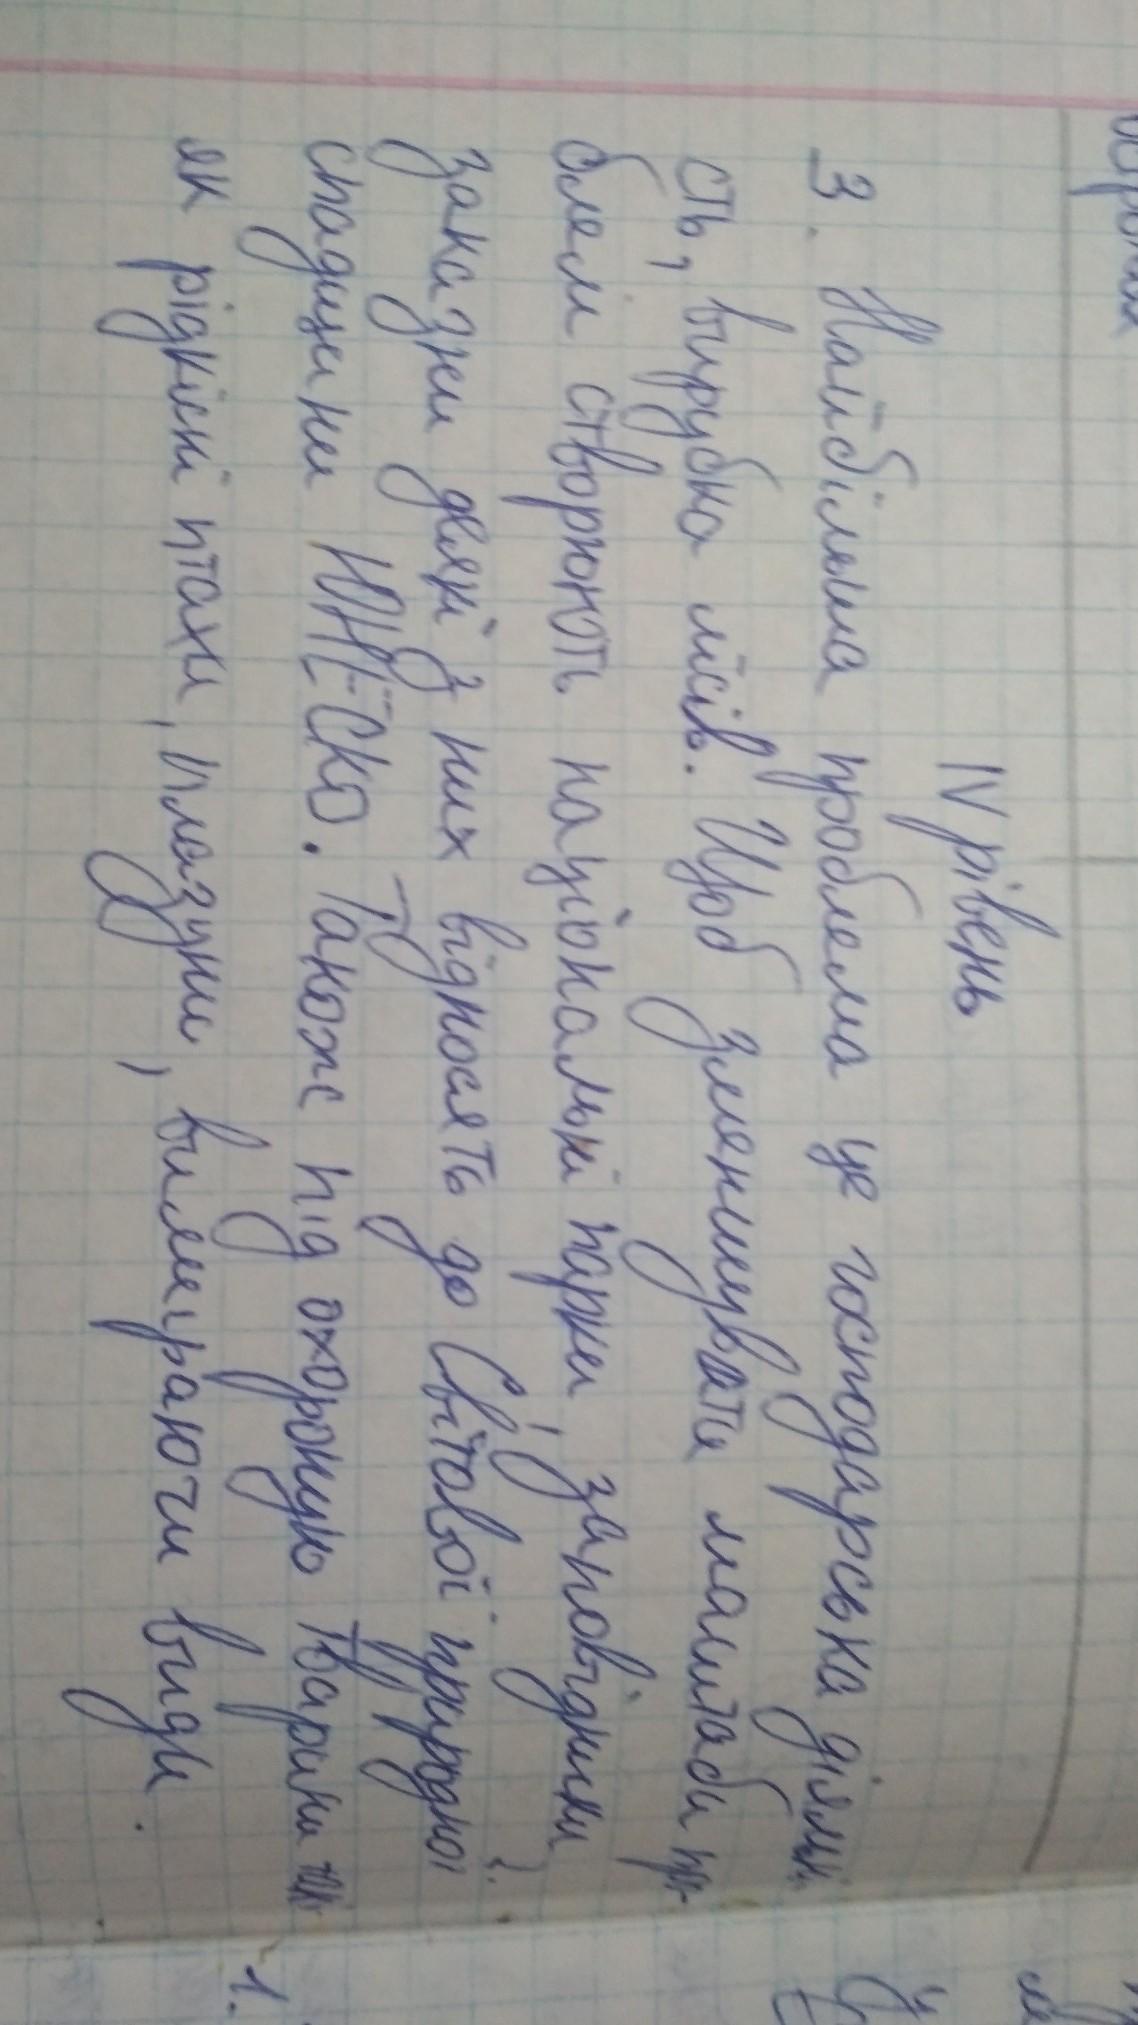 IV рівень
3. Найбільша проблема це господарська діяльні
сть, вирубка лісів. Щоб зменшувати масштаби про-
блем створюють національні парки, заповідники
заказники деякі з них відносять до Світової природної
спадщини ЮНЕСКО. Також під охороную тварини такі
як рідкісні птахи, плазуни, вимираючи види.
1.